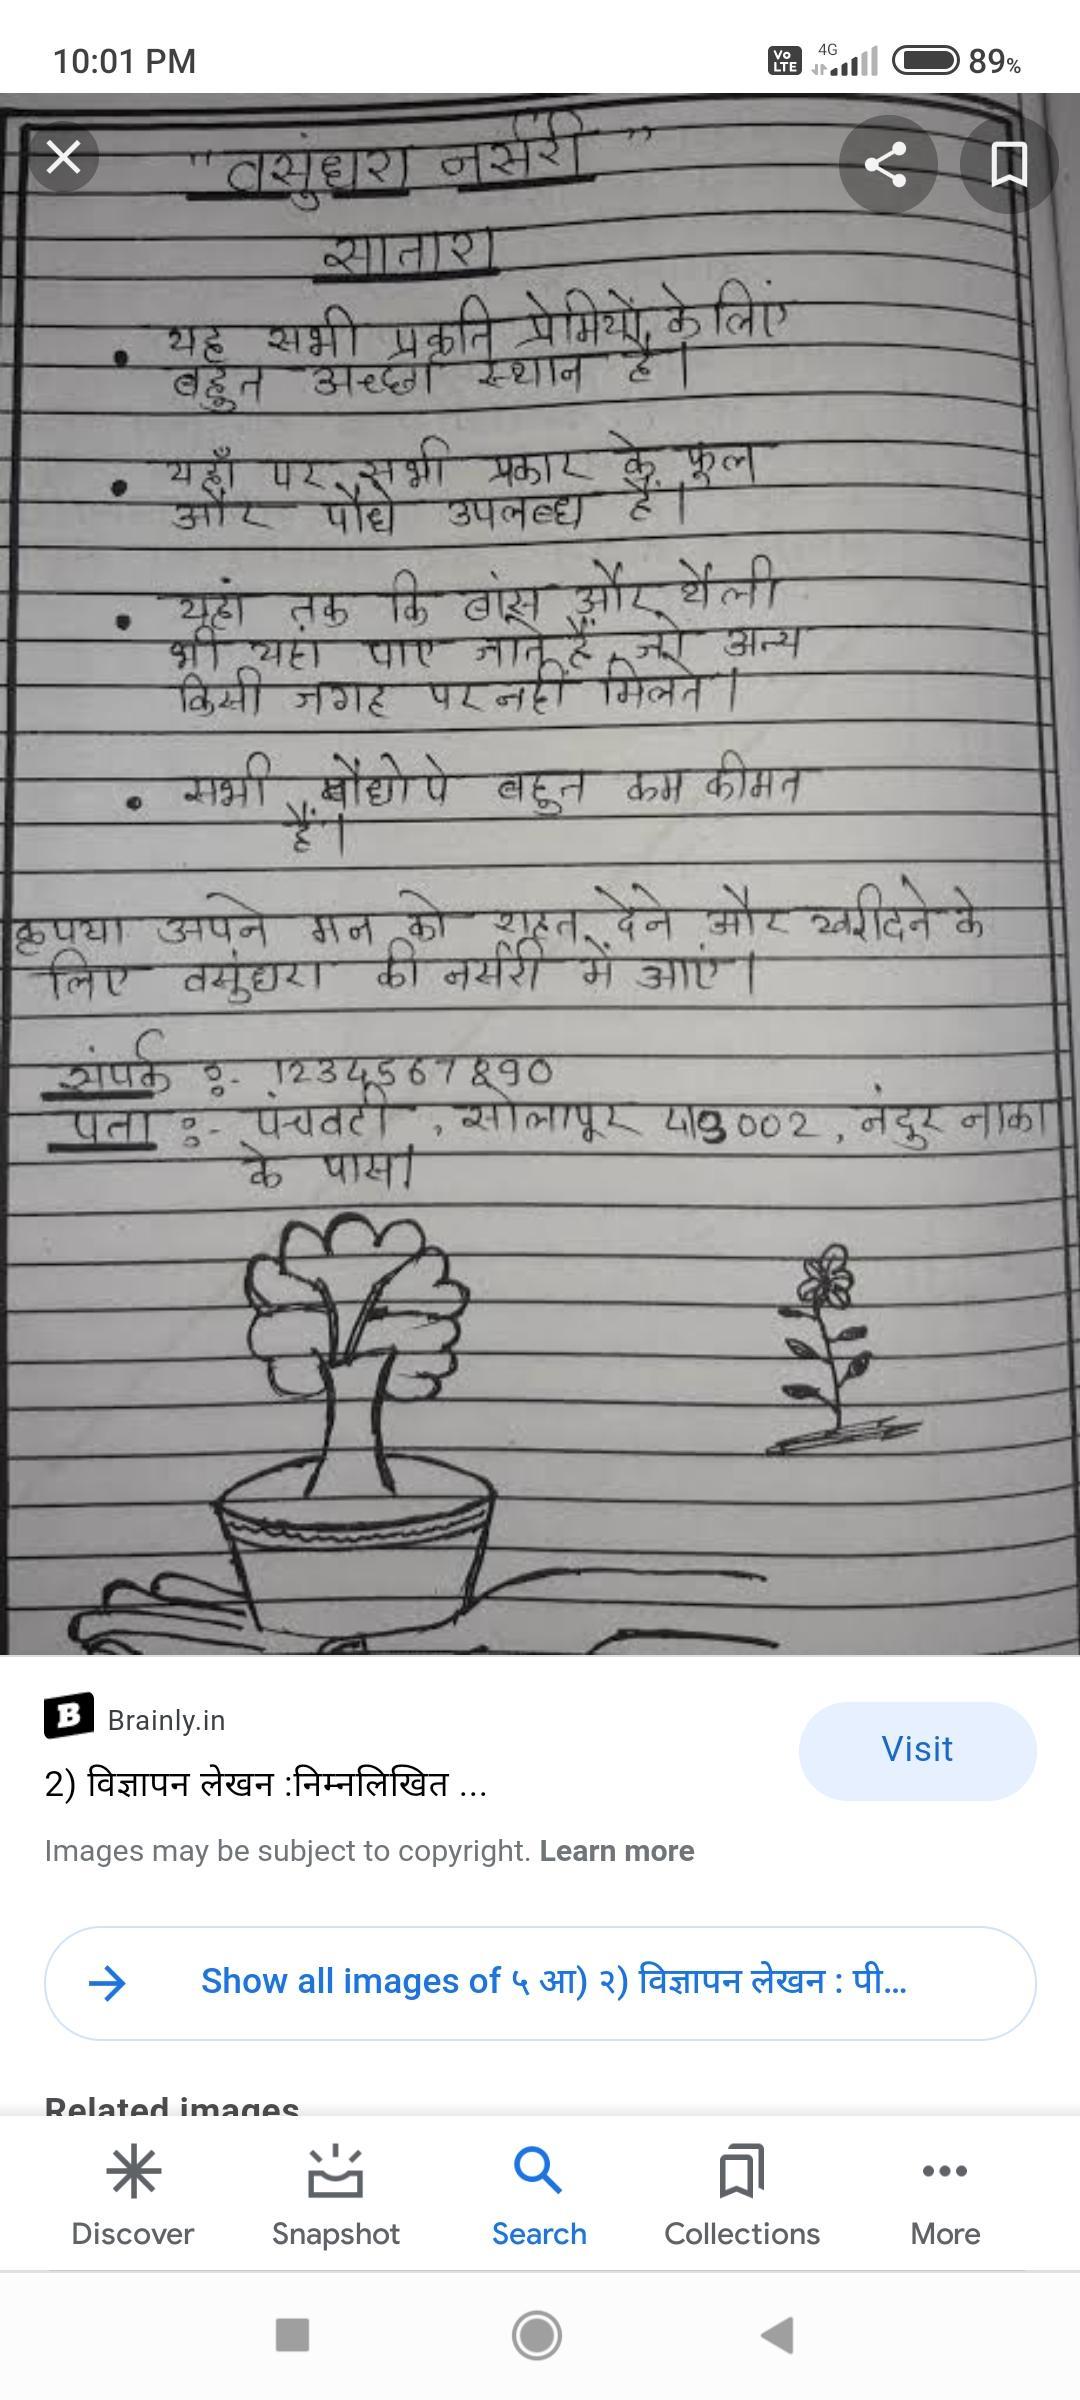 10:01 PM
Vo LTE 4G 89%
"वसुंधरा नर्सरी"
सातारा
• यह सभी प्रकृति प्रेमियों के लिएं
बहुत अच्छा स्थान है।
• यहाँ पर सभी प्रकार के फूल
और पौधे उपलब्ध हैं।
• यहां तक कि बांस और थैली
भी यहां पाए जाते हैं, जो अन्य
किसी जगह पर नहीं मिलते।
• सभी पौधोपे बहुत कम कीमत
हैं।
कृपया अपने मन को राहत देने और खरीदिने के
लिए वसुंधरा की नर्सरी में आएं।
संपर्क :- 1234567890
पता :- पंचवटी, सोलापूर 413002, नंदुर नाका
के पास।
B Brainly.in
Visit
2) विज्ञापन लेखन :निम्नलिखित ...
Images may be subject to copyright. Learn more
→ Show all images of ५ आ) २) विज्ञापन लेखन : पी...
Related images
Discover Snapshot Search Collections More